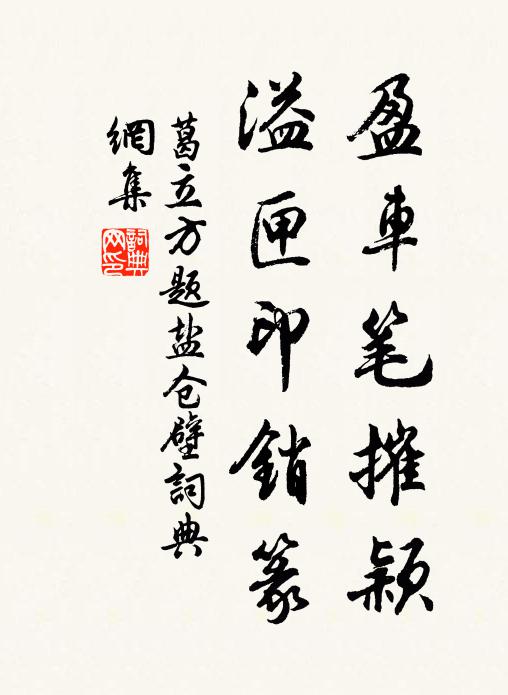 盈車笔摧颖
溢匣印銷篆
葛立方题盐仓壁詞典
網集
詞典
网印